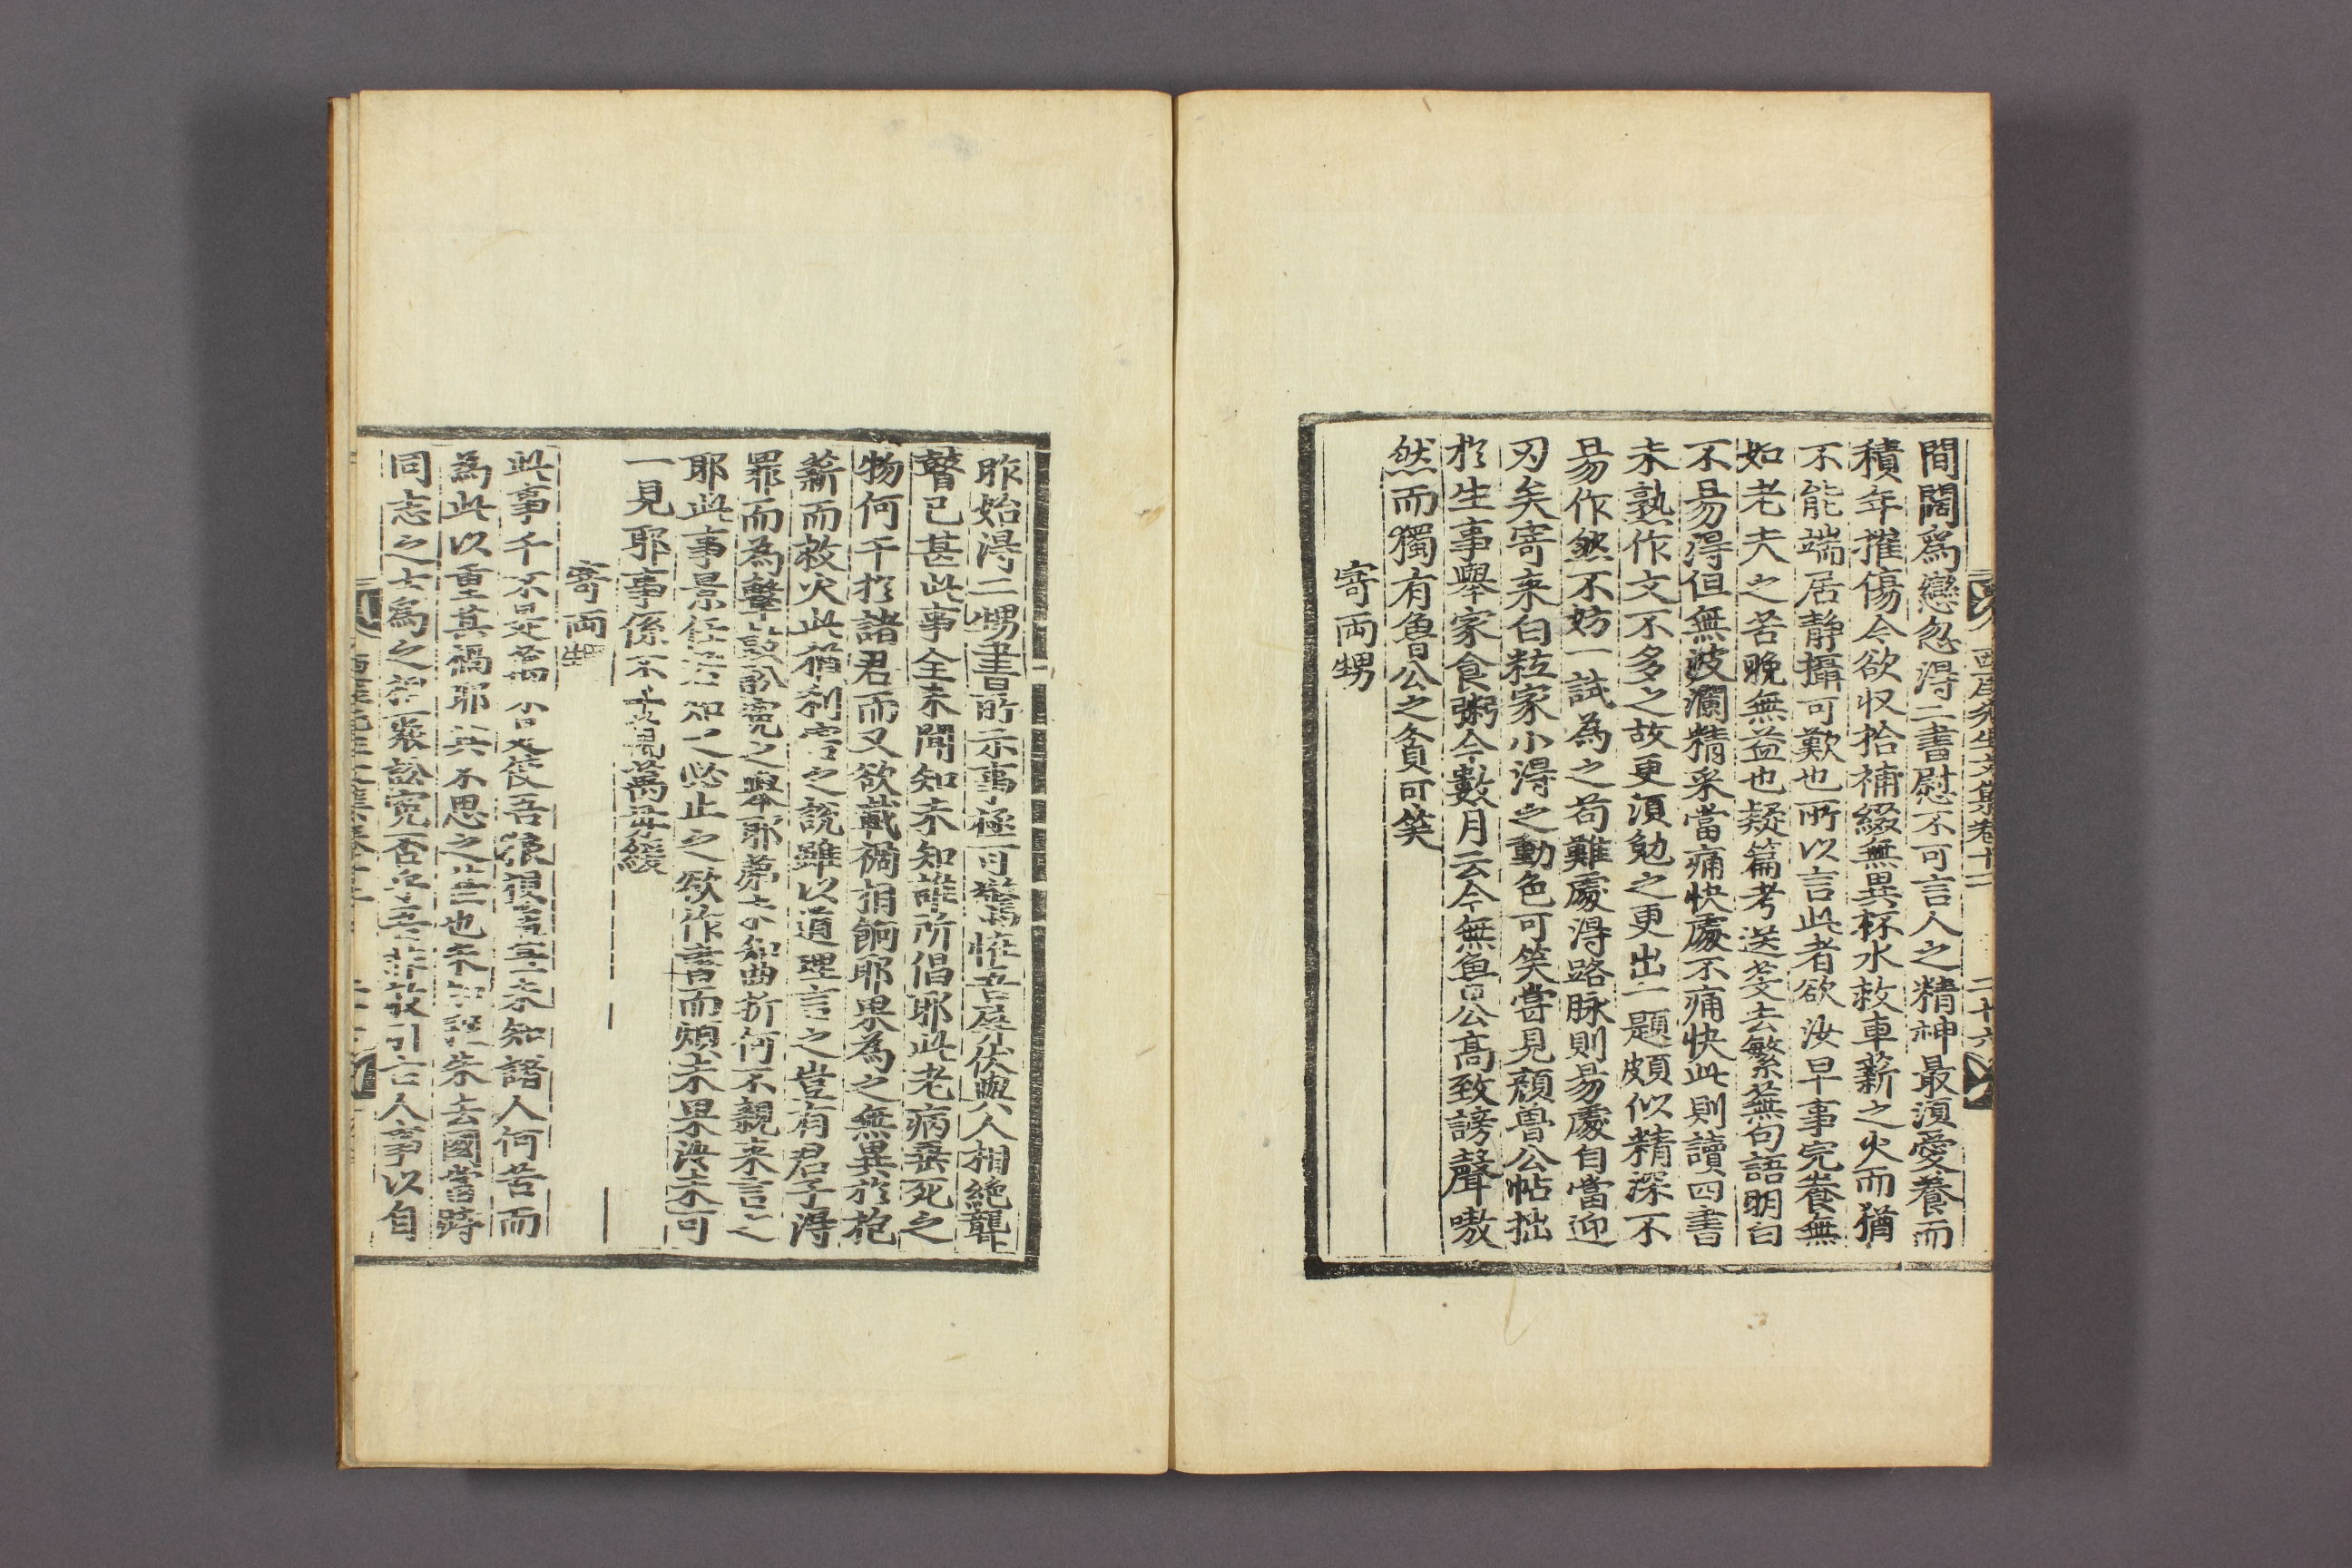 西厓先生文集卷十二 二十六
間闊爲戀忽得二書慰不可言人之精神最須愛養而
積年摧傷今欲収拾補綴無異杯水救車薪之火而猶
不能端居靜攝可歎也所以言此者欲汝早事完養無
如老夫之苦晚無益也疑篇考送芟去繁蕪句語明白
不易得但無波瀾精采當痛快處不痛快此則讀四書
未熟作文不多之故更須勉之更出一題頗似精深不
易作然不妨一試為之苟難處得路脉則易處自當迎
刃矣寄来白粒家小得之動色可笑嘗見顔魯公帖拙
於生事舉家食粥今數月云今無魚魯公高致謗聲嗷
然而獨有魯公之貧可笑
寄兩甥
昨始得二甥書所示事極可驚恠吾屛伏與人相絶聾
瞽已甚此事全未聞知未知誰所倡耶此老病垂死之
物何干於諸君而又欲載禍相餉耶果為之無異於抱
薪而救火此猶利害之說雖以道理言之豈有君子得
罪而為擊鼓訟寃之擧耶夢未知曲折何不親来言之
耶此事景任若知之必止之欲作書而煩未果汝未可
一見耶事係不萬萬毋緩
寄兩甥
此事千不是萬不是使吾狼狽至未知諸人何苦而
為此以重其禍耶其不思之甚也去國當時
同志之士為之訟寃否引古人事以自